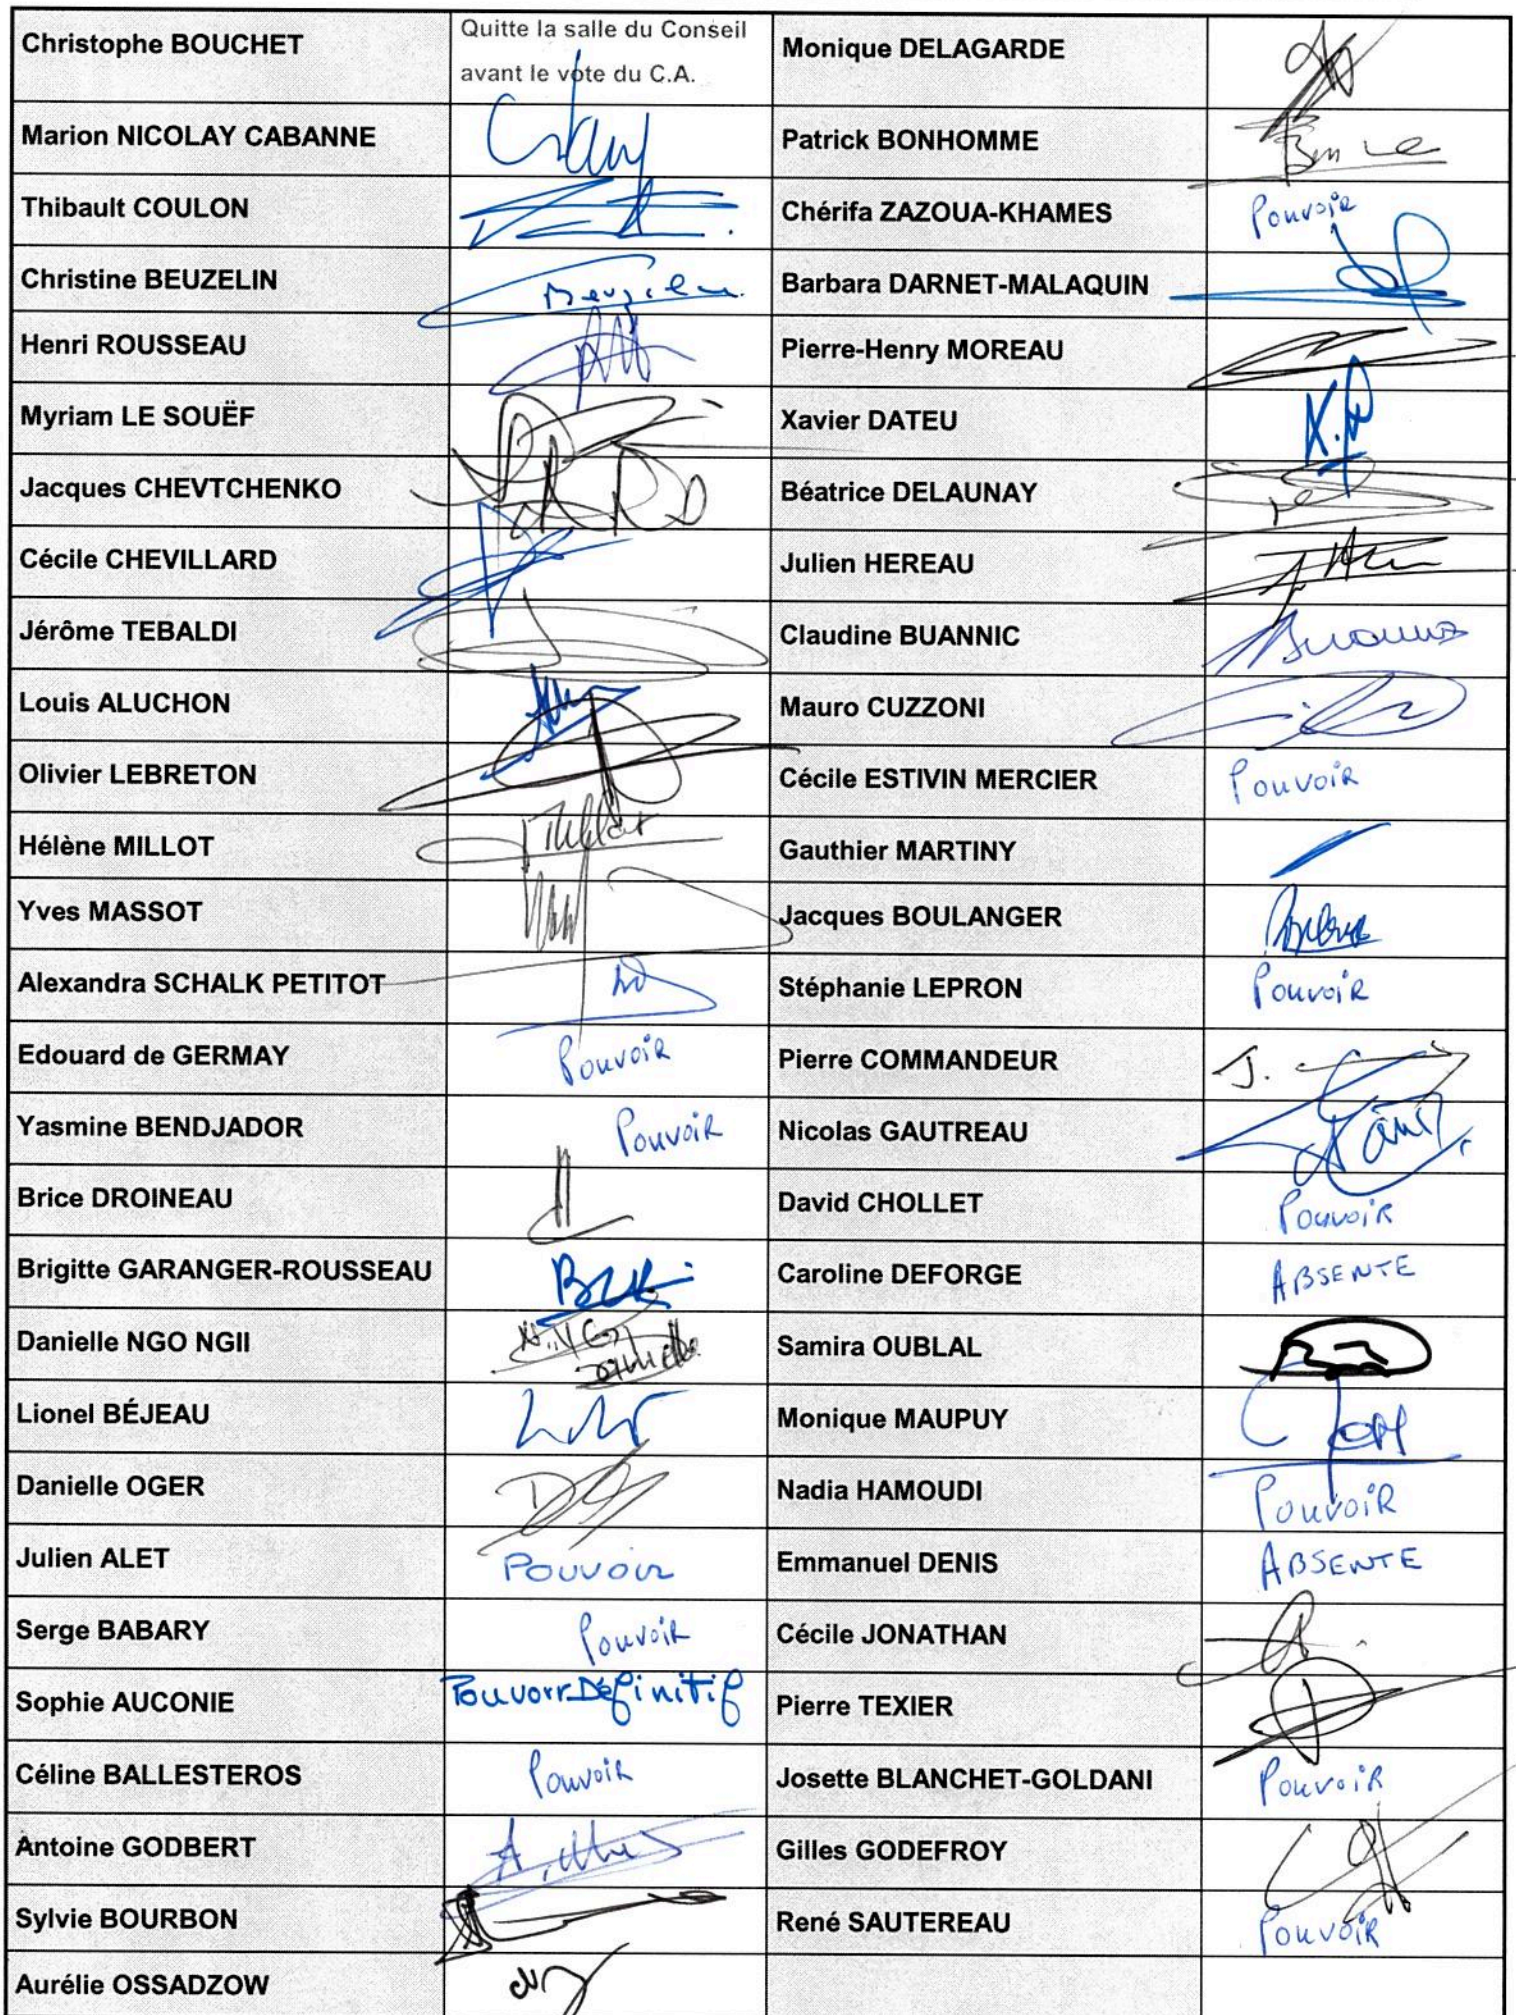 Christophe BOUCHET
Quitte la salle du Conseil
avant le vote du C.A.
Monique DELAGARDE
Marion NICOLAY CABANNE
Patrick BONHOMME
Thibault COULON
Chérifa ZAZOUA-KHAMES
Pouvoir
Christine BEUZELIN
Barbara DARNET-MALAQUIN
Henri ROUSSEAU
Pierre-Henry MOREAU
Myriam LE SOUËF
Xavier DATEU
Jacques CHEVTCHENKO
Béatrice DELAUNAY
Cécile CHEVILLARD
Julien HEREAU
Jérôme TEBALDI
Claudine BUANNIC
Louis ALUCHON
Mauro CUZZONI
Olivier LEBRETON
Cécile ESTIVIN MERCIER
Pouvoir
Hélène MILLOT
Gauthier MARTINY
Yves MASSOT
Jacques BOULANGER
Alexandra SCHALK PETITOT
Stéphanie LEPRON
Pouvoir
Edouard de GERMAY
Pouvoir
Pierre COMMANDEUR
Yasmine BENDJADOR
Pouvoir
Nicolas GAUTREAU
Brice DROINEAU
David CHOLLET
Pouvoir
Brigitte GARANGER-ROUSSEAU
Caroline DEFORGE
ABSENTE
Danielle NGO NGII
Samira OUBLAL
Lionel BÉJEAU
Monique MAUPUY
Danielle OGER
Nadia HAMOUDI
Pouvoir
Julien ALET
Pouvoir
Emmanuel DENIS
ABSENTE
Serge BABARY
Pouvoir
Cécile JONATHAN
Sophie AUCONIE
Pouvoir Définitif
Pierre TEXIER
Céline BALLESTEROS
Pouvoir
Josette BLANCHET-GOLDANI
Pouvoir
Antoine GODBERT
Gilles GODEFROY
Sylvie BOURBON
René SAUTEREAU
Pouvoir
Aurélie OSSADZOW